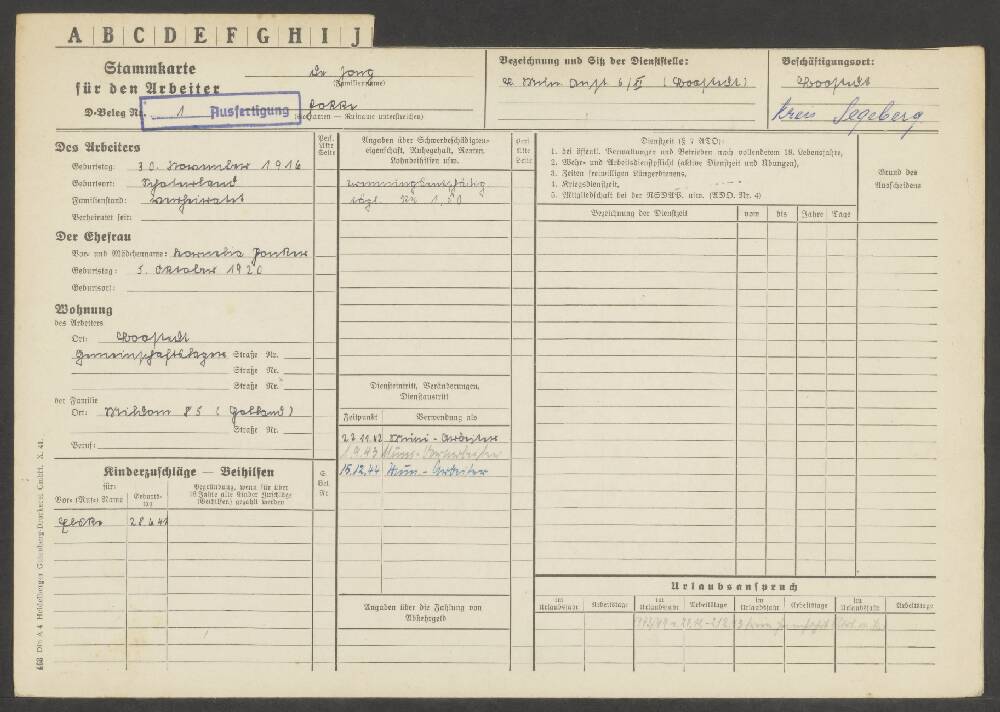 A B C D E F G H I J
Stammkarte
für den Arbeiter
De Jong
(Familienname)
D-Beleg Nr. 1 Ausfertigung
Fokke
(Vornamen — Rufname unterstreichen)
Bezeichnung und Sitz der Dienststelle:
(Boostedt)
Beschäftigungsort:
Boostedt
Kreis Segeberg
Des Arbeiters
Geburtstag: 30. November 1916
Geburtsort:
Familienstand: verheiratet
Verheiratet seit:
Der Ehefrau
Vor- und Mädchenname: Kornelia Jonker
Geburtstag: 5. Oktober 1920
Geburtsort:
Wohnung
des Arbeiters
Ort: Boostedt
Gemeinschaftslager Straße Nr.
Straße Nr.
Straße Nr.
der Familie
Ort: Mildam 85 (Holland)
Straße Nr.
Beruf:
Kinderzuschläge — Beihilfen
für:
Vor- (Ruf-) Name
Geburtstag
Begründung, wenn für über 16 Jahre alte Kinder Zuschläge (Beihilfen) gezahlt werden
S. Bel. Nr.
28.6.41
Pers. Akte Seite
Angaben über Schwerbeschädigteneigenschaft, Ruhegehalt, Renten, Lohnbeihilfen usw.
1,50
Diensteintritt, Veränderungen, Dienstaustritt
Zeitpunkt Verwendung als
27.11.42 Muni-Arbeiter
1.9.43
15.12.44 Mun-Arbeiter
Angaben über die Zahlung von Abkehrgeld
Pers. Akte Seite
Dienstzeit (§ 7 ADO):
1. bei öffentl. Verwaltungen und Betrieben nach vollendetem 18. Lebensjahre,
2. Wehr- und Arbeitsdienstpflicht (aktive Dienstzeit und Übungen),
3. Zeiten freiwilligen Längerdienens,
4. Kriegsdienstzeit,
5. Mitgliedschaft bei der NSDAP. usw. (ADO. Nr. 4)
Bezeichnung der Dienstzeit vom bis Jahre Tage
Grund des Ausscheidens
Urlaubsanspruch
im Urlaubsjahr Arbeitstage im Urlaubsjahr Arbeitstage im Urlaubsjahr Arbeitstage im Urlaubsjahr Arbeitstage
468 Din A 4 Heidelberger Gutenberg-Druckerei GmbH. X. 41.